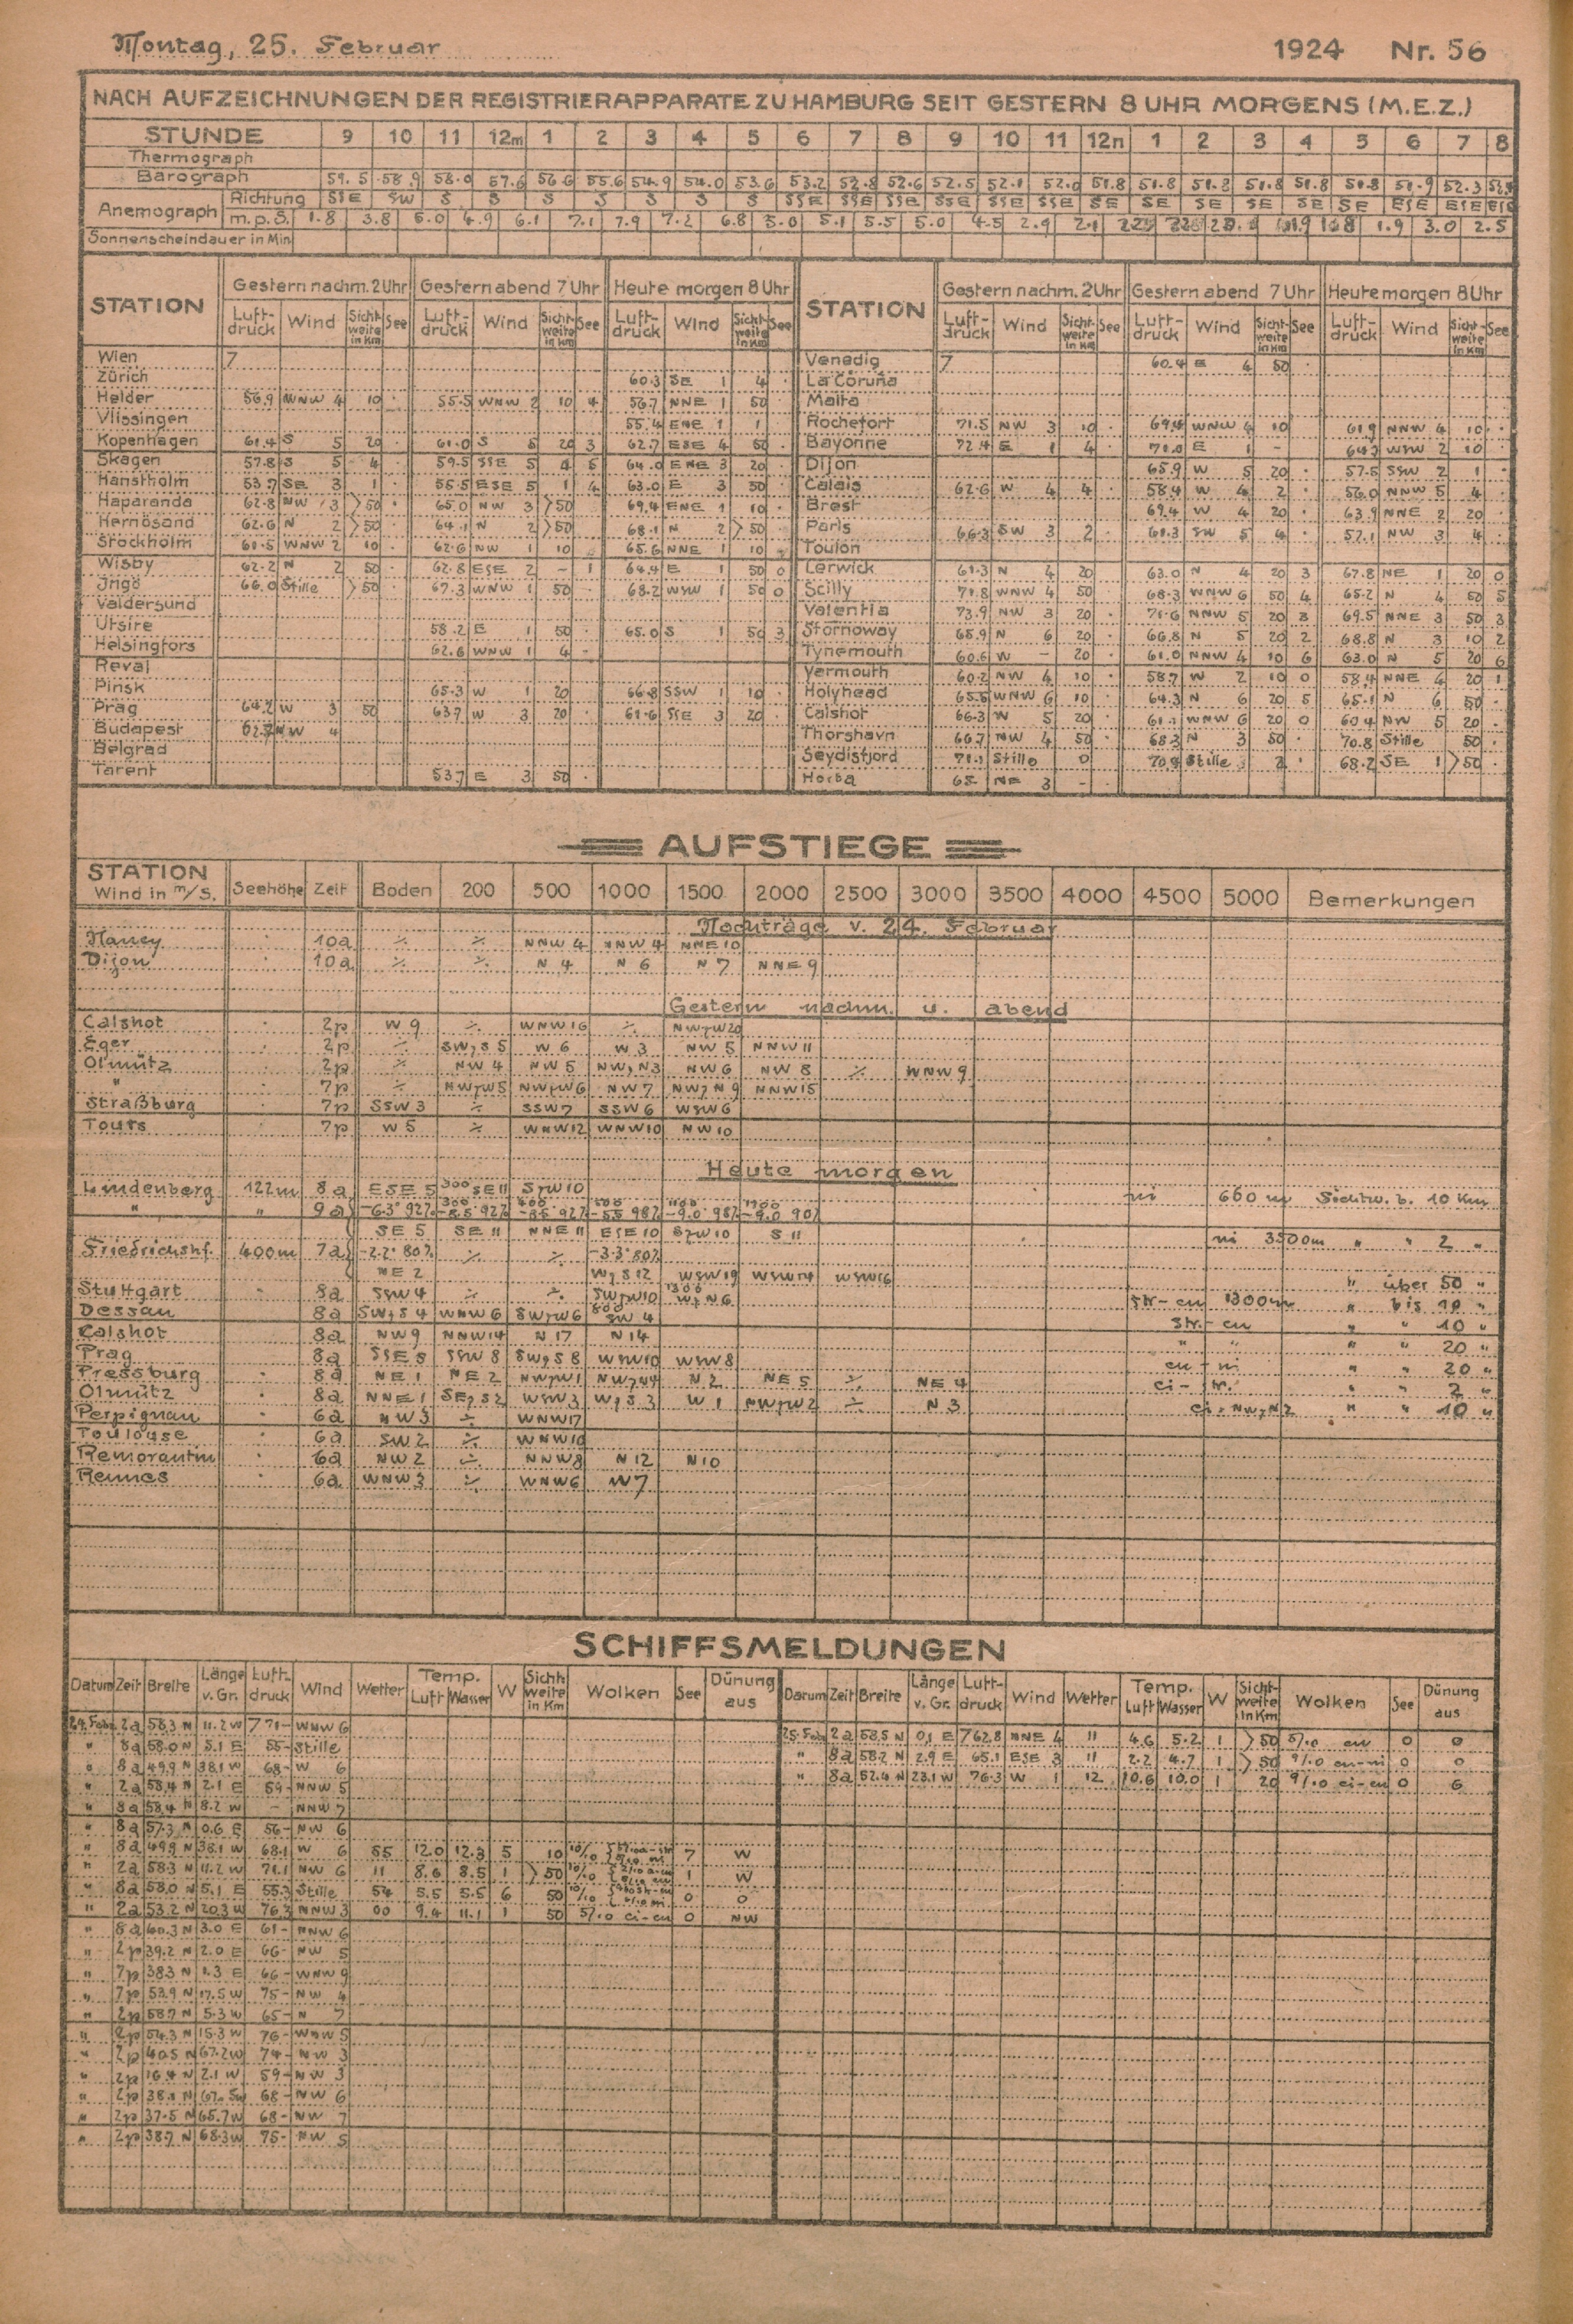 Montag, 25. Februar 1924 Nr. 56
NACH AUFZEICHNUNGEN DER REGISTRIERAPPARATE ZU HAMBURG SEIT GESTERN 8 UHR MORGENS (M.E.Z.)
STUNDE 9 10 11 12m 1 2 3 4 5 6 7 8 9 10 11 12n 1 2 3 4 5 6 7 8
Thermograph
Barograph 59.5 58.9 58.0 57.6 56.6 55.6 54.9 54.0 53.6 53.2 52.8 52.6 52.5 52.1 52.0 51.8 51.8 51.8 51.8 51.8 51.8 51.9 52.3
Anemograph Richtung SSE SW S S S S S S S SSE SSE SSE SSE SSE SSE SE SE SE SE SE SE ESE ESE ESE
m.p.S. 1.8 3.8 5.0 4.9 6.1 7.1 7.9 7.2 6.8 5.0 5.1 5.5 5.0 4.5 2.9 2.1 1.9 3.0 2.5
Sonnenscheindauer in Min
STATION Gestern nachm. 2 Uhr Gestern abend 7 Uhr Heute morgen 8 Uhr STATION Gestern nachm. 2 Uhr Gestern abend 7 Uhr Heute morgen 8 Uhr
Luft-druck Wind Sicht-weite in Km See Luft-druck Wind Sicht-weite in Km See Luft-druck Wind Sicht-weite in Km See Luft-druck Wind Sicht-weite in Km See Luft-druck Wind Sicht-weite in Km See Luft-druck Wind Sicht-weite in Km See
Wien 7 Venedig 7 60.4 E 4 50 .
Zürich 60.3 SE 1 4 . La Coruña
Helder 56.9 WNW 4 10 . 55.5 WNW 2 10 4 56.7 NNE 1 50 Malta
Vlissingen 55.4 ENE 1 1 . Rochefort 71.5 NW 3 10 . 69.4 WNW 4 10 61.9 NNW 4 10 .
Kopenhagen 61.4 S 5 20 . 61.0 S 5 20 3 62.7 ESE 4 50 . Bayonne 72.4 E 1 4 . 71.0 E 1 - 64.3 WSW 2 10 .
Skagen 57.8 S 5 4 . 59.5 SSE 5 4 5 64.0 ENE 3 20 . Dijon 65.9 W 5 20 . 57.5 SSW 2 1 .
Hanstholm 53.7 SE 3 1 . 55.5 ESE 5 1 4 63.0 E 3 50 . Calais 62.6 W 4 4 . 58.4 W 4 2 . 56.0 NNW 5 4 .
Haparanda 62.8 NW 3 >50 . 65.0 NW 3 >50 69.4 ENE 1 10 . Brest 69.4 W 4 20 . 63.9 NNE 2 20 .
Hernösand 62.6 N 2 >50 . 64.1 N 2 >50 68.1 N 2 >50 . Paris 66.3 SW 3 2 . 61.3 SW 5 4 . 57.1 NW 3 4 .
Stockholm 61.5 WNW 2 10 . 62.6 NW 1 10 65.6 NNE 1 10 Toulon
Wisby 62.2 N 2 50 . 62.8 ESE 2 - 1 64.4 E 1 50 0 Lerwick 61.3 N 4 20 63.0 N 4 20 3 67.8 NE 1 20 0
Ingö 66.0 Stille >50 . 67.3 WNW 1 50 . 68.2 WSW 1 50 0 Scilly 71.8 WNW 4 50 . 68.3 WNW 6 50 4 65.2 N 4 50 5
Valdersund Valentia 73.9 NW 3 20 . 71.6 NNW 5 20 3 69.5 NNE 3 50 3
Utsire 58.2 E 1 50 . 65.0 S 1 50 3 Stornoway 65.9 N 6 20 . 66.8 N 5 20 2 68.8 N 3 10 2
Helsingfors 62.6 WNW 1 4 . Tynemouth 60.6 W - 20 . 61.0 NNW 4 10 6 63.0 N 5 20 6
Reval Yarmouth 60.2 NW 4 10 . 58.7 W 2 10 0 58.4 NNE 4 20 1
Pinsk 65.3 W 1 20 66.8 SSW 1 10 . Holyhead 65.6 WNW 6 10 . 64.3 N 6 20 5 65.1 N 6 50 .
Prag 64.2 W 3 50 63.7 W 3 20 . 61.6 SSE 3 20 . Calshot 66.3 W 5 20 . 61.1 WNW 6 20 0 60.4 NW 5 20 .
Budapest NW 4 Thorshavn 66.7 NW 4 50 . 68.3 N 3 50 . 70.8 Stille 50 .
Belgrad Seydisfjord 71.1 Stille 0 70.9 Stille 2 . 68.2 SE 1 >50 .
Tarent 53.7 E 3 50 . Horta 65. NE 3 -
AUFSTIEGE
STATION Wind in m/S. Seehöhe Zeit Boden 200 500 1000 1500 2000 2500 3000 3500 4000 4500 5000 Bemerkungen
Nachträge v. 24. Februar
Nancy . 10a ⁒ ⁒ NNW 4 NNW 4 NNE 10
Dijon . 10a ⁒ ⁒ N 4 N 6 N 7 NNE 9
Gestern nachm. u. abend
Calshot . 2p W 9 ⁒ WNW 16 ⁒ NWzW 20
Eger . 2p ⁒ SWzS 5 W 6 W 3 NW 5 NNW 11
Olmütz . 2p ⁒ NW 4 NW 5 NWzN 3 NW 6 NW 8 ⁒ WNW 9
" . 7p ⁒ NWzW 5 NWzW 6 NW 7 NWzN 9 NNW 15
Straßburg . 7p SSW 3 ⁒ SSW 7 SSW 6 WSW 6
Tours . 7p W 5 ⁒ WNW 12 WNW 10 NW 10
Heute morgen
Lindenberg 122m 8a ESE 5 300 SE 11 SzW 10 ni 660 m Sichtw. b. 10 Km
" " 9a -6.3° 92% 300 -8.5° 92% -8.5° 92% 500 -5.5 98% 1100 -9.0 98% 1900 -9.0 90%
SE 5 SE 11 NNE 11 ESE 10 SzW 10 S 11 ni 3500m " " 2 "
Friedrichshf. 400m 7a -2.2° 80% ⁒ ⁒ -3.3° 80%
NE 2 WzS 12 WSW 19 WSW 14 WSW 16 " über 50 "
Stuttgart . 8a SSW 4 ⁒ ⁒ SWzW 10 1300 WzN 6 str-cu 1300m " bis 10 "
Dessau 8a SWzS 4 WNW 6 SWzW 6 800 SW 4 str.-cu " " 10 "
Calshot . 8a NW 9 NNW 14 N 17 N 14 " " " " 20 "
Prag . 8a SSE 5 SSW 8 SWzS 8 WSW 10 WSW 8 cu-ni " " 20 "
Pressburg . 8a NE 1 NE 2 NWzW 1 N 2 NE 5 ⁒ NE 4 ci-str. " " 2 "
Olmütz . 8a NNE 1 SEzS 2 WSW 3 WzS 3 W 1 NWzW 2 ⁒ N 3 ci, NWzN 2 " " 10 "
Perpignan . 6a NW 3 ⁒ WNW 17
Toulouse . 6a SW 2 ⁒ WNW 10
Remorantin . 6a NW 2 ⁒ NNW 8 N 12 N 10
Rennes . 6a WNW 3 ⁒ WNW 6 W 7
SCHIFFSMELDUNGEN
Datum Zeit Breite Länge v. Gr. Luft-druck Wind Wetter Temp. Luft Wasser W Sicht-weite in Km Wolken See Dünung aus Datum Zeit Breite Länge v. Gr. Luft-druck Wind Wetter Temp. Luft Wasser W Sicht-weite in Km Wolken See Dünung aus
24. Febr. 2a 58.3 N 11.2 W 771- WNW 6 25. Febr. 2a 58.5 N 0.1 E 762.8 NNE 4 11 4.6 5.2 1 >50 5/10 cu 0 0
" 8a 58.0 N 5.1 E 55- Stille " 8a 58.2 N 2.9 E 65.1 ESE 3 11 2.2 4.7 1 >50 9/10 cu-ni 0 0
" 8a 49.9 N 38.1 W 68- W 6 " 8a 52.4 N 23.1 W 76.3 W 1 12 10.6 10.0 1 20 9/10 ci-cu 0 6
" 2a 58.4 N 2.1 E 59- NNW 5
" 8a 58.4 N 8.2 W - NNW 7
" 8a 57.3 N 0.6 E 56- NW 6
" 8a 49.9 N 38.1 W 68.1 W 6 55 12.0 12.3 5 10 10/10 7 W
" 2a 58.3 N 11.2 W 71.1 NW 6 11 8.6 8.5 1 >50 10/10 1 W
" 8a 58.0 N 5.1 E 55.3 Stille 54 5.5 5.5 6 50 10/10 0 0
" 2a 53.2 N 20.3 W 76.3 NNW 3 00 9.4 11.1 1 50 5/10 ci-cu 0 NW
" 8a 60.3 N 3.0 E 61- NNW 6
" 2p 39.2 N 2.0 E 66- NW 5
" 7p 38.3 N 1.3 E 66- WNW 9
" 7p 53.9 N 17.5 W 75- NW 4
" 2p 58.7 N 5.3 W 65- N 7
" 2p 54.3 N 15.3 W 76- WNW 5
" 2p 40.5 N 67.2 W 74- NW 3
" 2p 16.4 N 2.1 W 59- NW 3
" 2p 38.1 N 67.5 W 68- NW 6
" 2p 37.5 N 65.7 W 68- NW 7
" 2p 38.7 N 68.3 W 75- NW 5